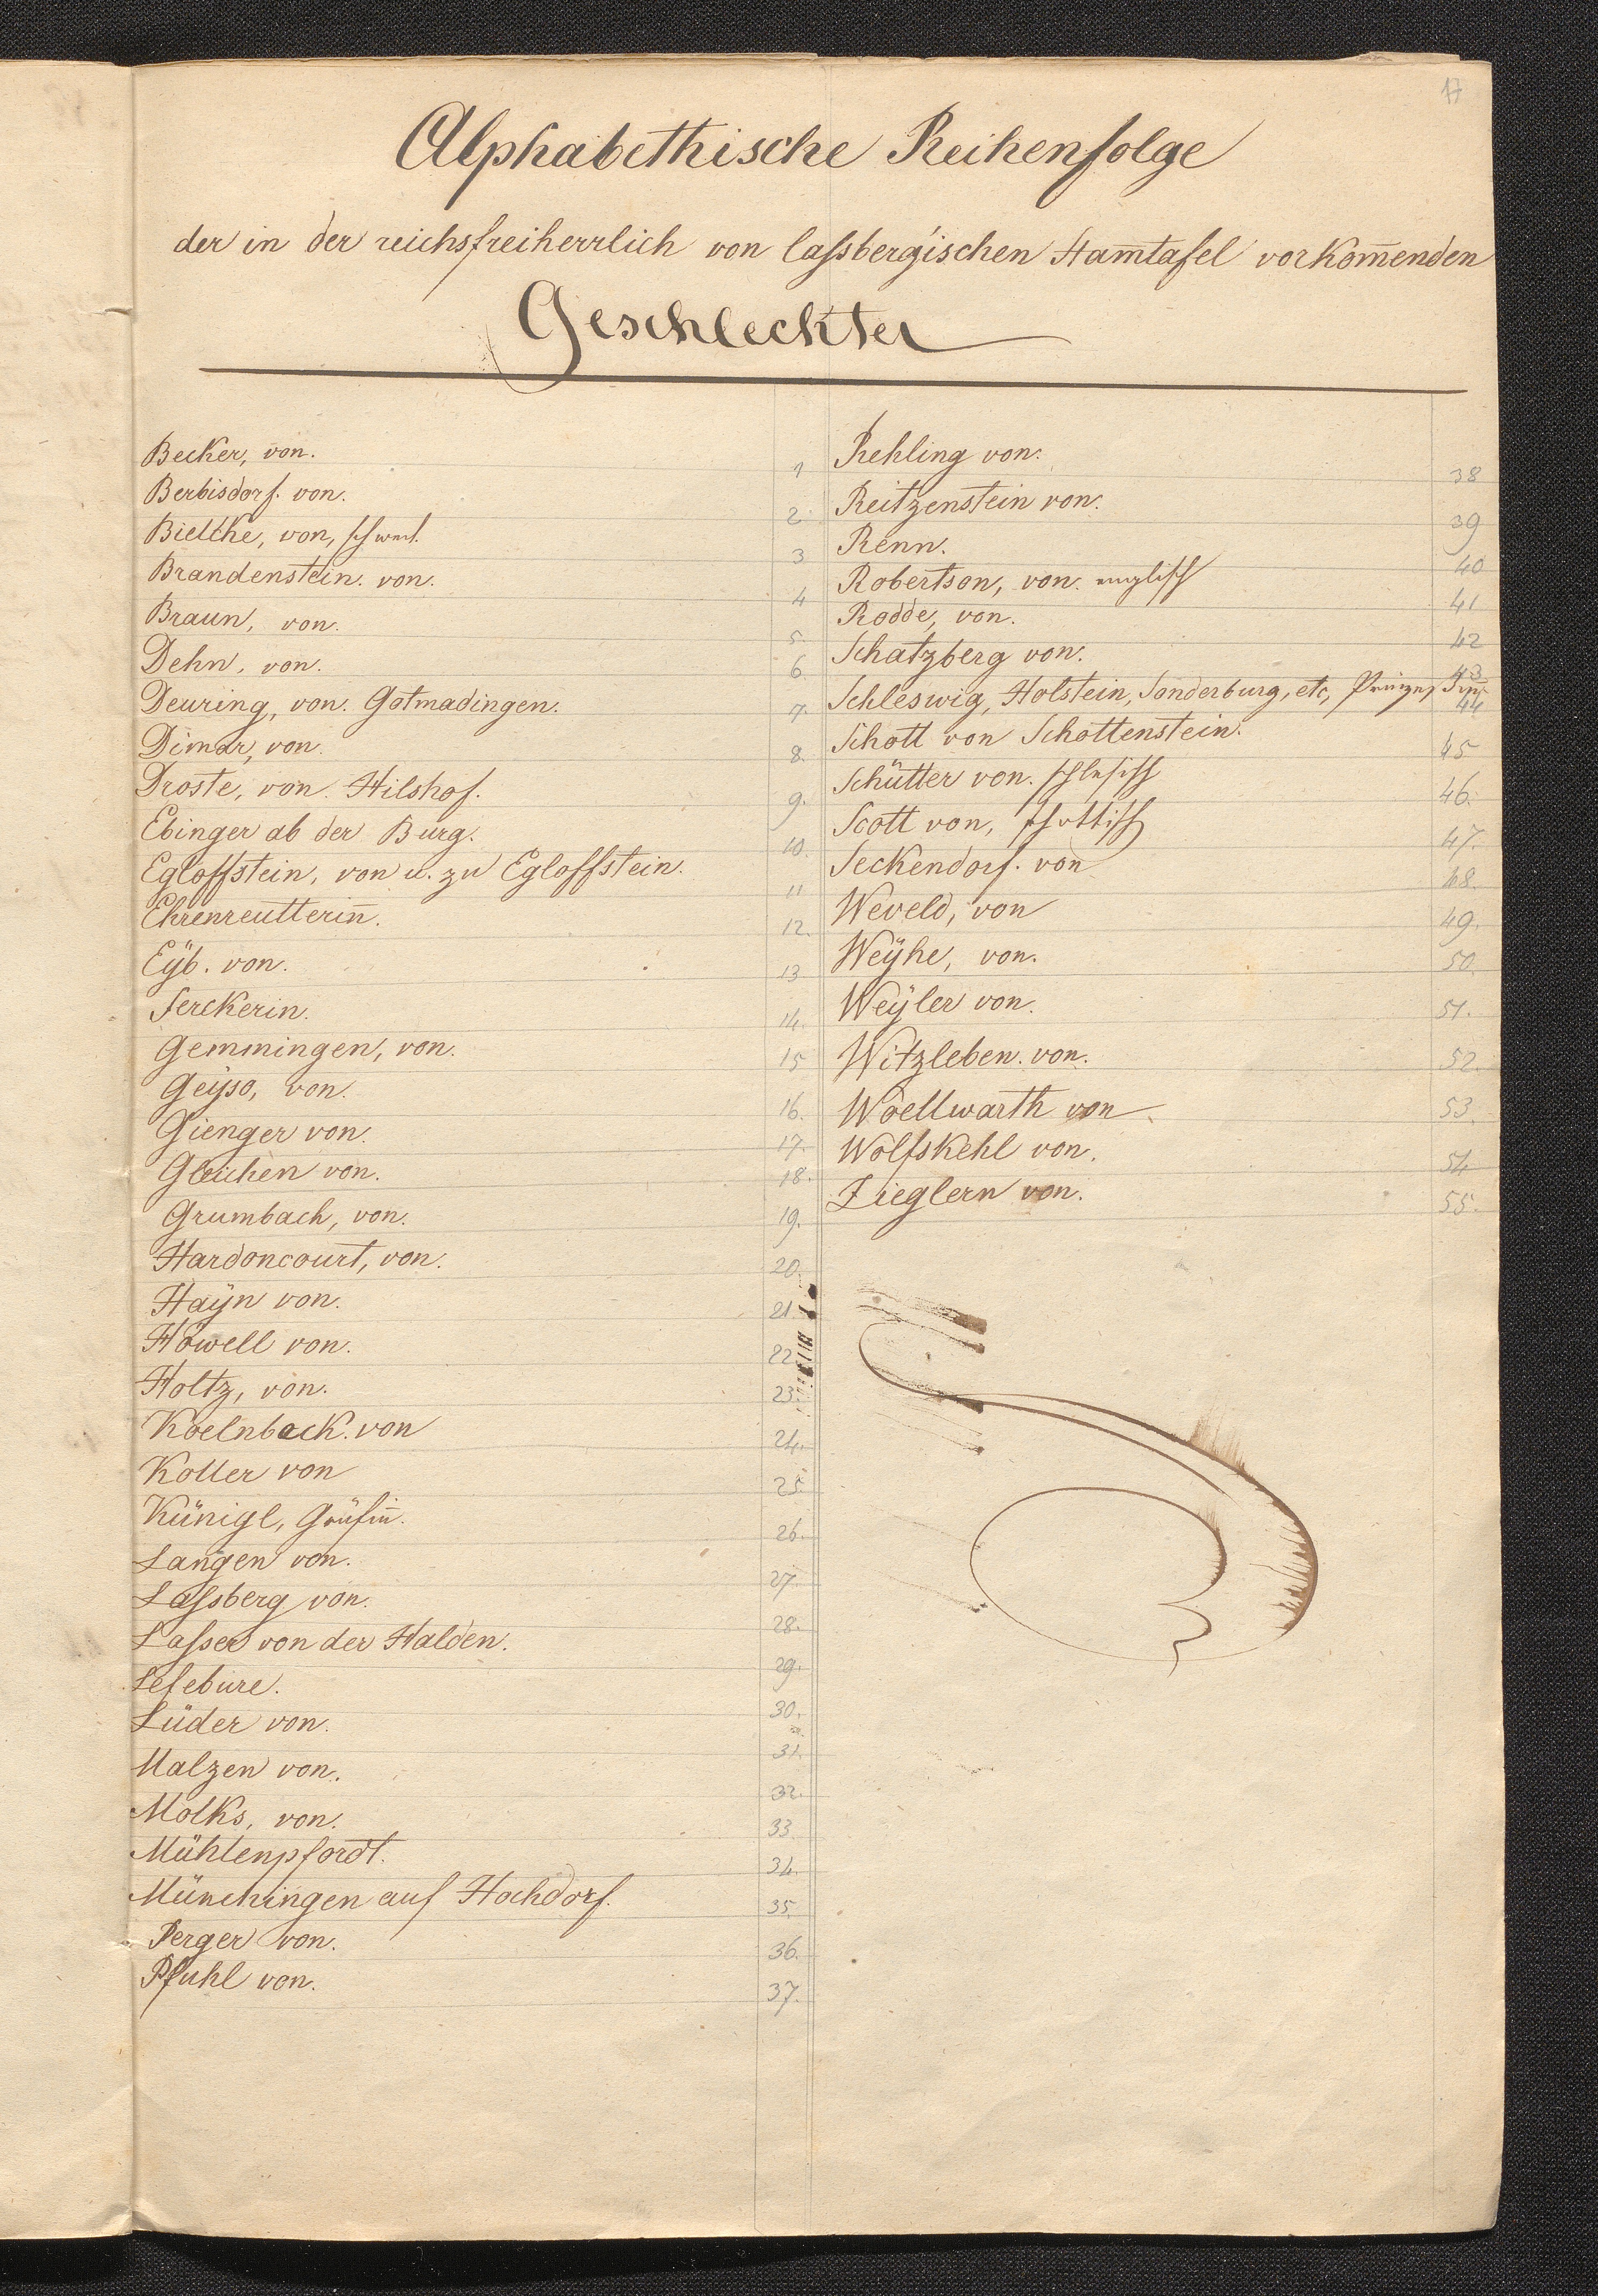 17
Alphabethische Reihenfolge
der in der reichsfreiherrlich von laſsberg'ischen Stam̄tafel vorkom̄enden
Geschlechter
Becker, von. 1
Berbisdorf. von. 2
Bielcke, von, schwed. 3
Brandenstein. von. 4
Braun, von. 5.
Dehn, von. 6
Deuring, von. Gotmadingen. 7.
Dimar, von. 8.
Droste, von. Hilshof. 9.
Ebinger ab der Burg. 10.
Egloffstein, von u. zu Egloffstein. 11
Ehrenreutterin̄. 12.
Eÿb. von. 13
Ferckerin. 14.
Gemmingen, von. 15
Geÿso, von. 16.
Gienger von. 17.
Gleichen von. 18.
Grumbach, von. 19.
Hardoncourt, von. 20.
Haÿn von. 21
Höwell von. 22
Holtz, von. 23.
Koelnback. von 24.
Koller von 25.
Künigl, Gräfin̄. 26.
Langen von. 27.
Laſsberg von. 28.
Laſser von der Halden. 29.
Lefebure. 30.
Lüder von. 31.
Malzen von. 32.
Molks, von. 33
Mühlenpfordt. 34.
Münchingen auf Hochdorf. 35.
Perger von. 36.
Pfuhl von. 37.
Rehling von. 38
Reitzenstein von. 39
Renn. 40
Robertson, von. englisch 41
Rodde, von. 42
Schatzberg von. 43
Schleswig, Holstein, Sonderburg, etc, 44
Schott von Schottenstein. 45
Schütter von. schlesisch 46.
Scott von, schottisch 47.
Seckendorf. von 48.
Weveld, von 49.
Weÿhe, von. 50.
Weÿler von. 51.
Witzleben. von. 52.
Woellwarth von 53.
Wolfskehl von. 54
Zieglern von. 55.